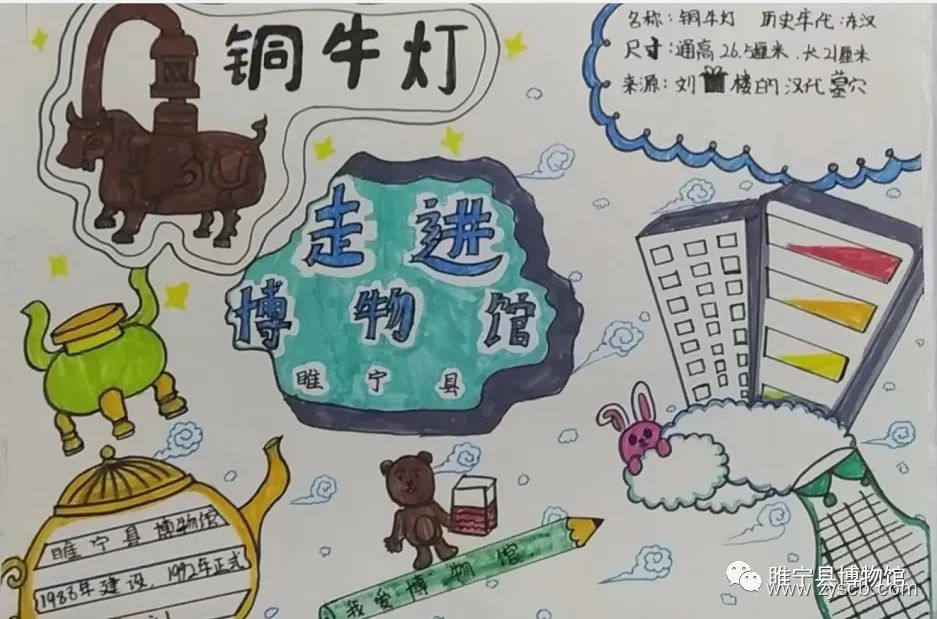 铜牛灯
名称：铜牛灯 历史年代：东汉
尺寸：通高26.5厘米.长21厘米
来源：刘楼的汉代墓穴
走进
博物馆
睢宁县
睢宁县博物馆
1988年建设，1992年正式
我爱博物馆
睢宁县博物馆
www.zyscb.com